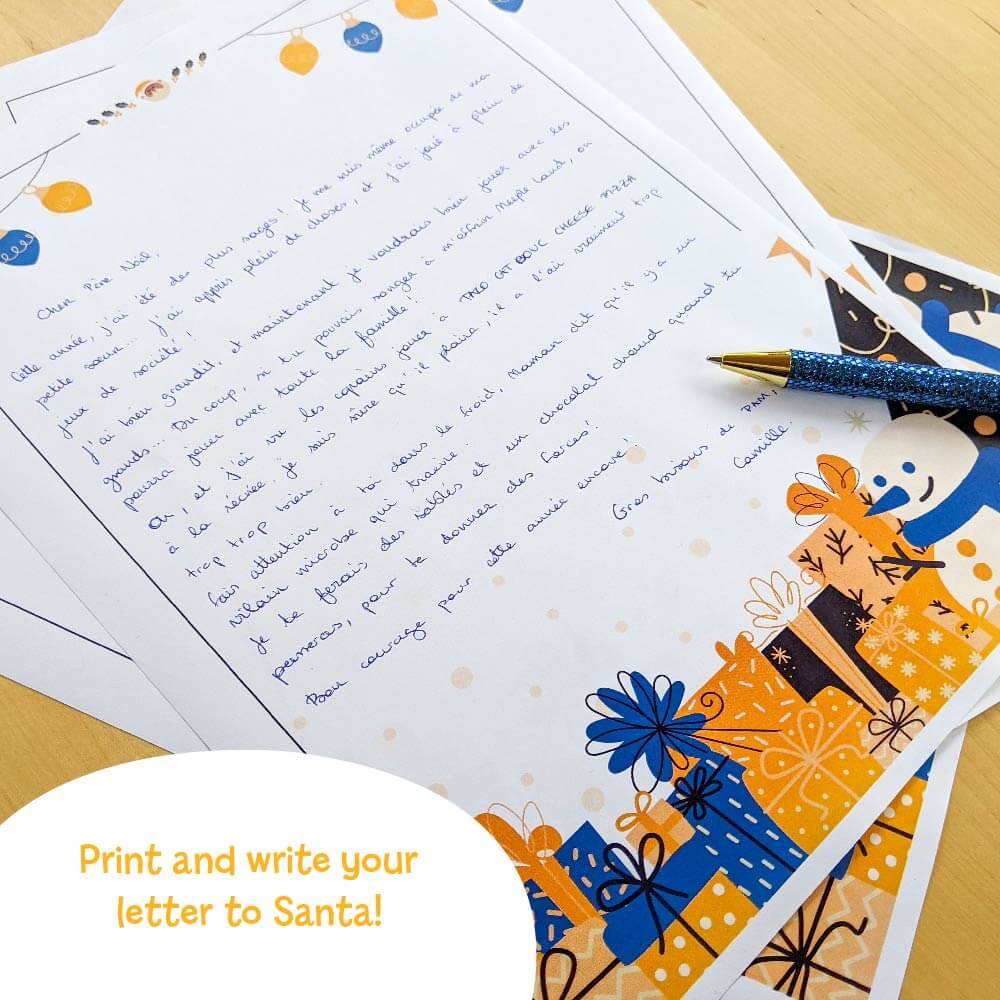 Cher Père Noël,
Cette année, j'ai été des plus sages! Je me suis même occupée de ma
petite sœur... j'ai appris plein de choses, et j'ai joué à plein de
jeux de société!
J'ai bien grandit, et maintenant je voudrais bien jouer avec les
grands... Du coup, si tu pouvais songer à m'offrir Meeple Land, on
pourra jouer avec toute la famille!
Oh, et j'ai vu les copains jouer à TACO CAT BOUC CHEESE PIZZA
à la récrée. Je suis sûre qu'il plaira, il a l'air vraiment trop
trop trop bien.
Fais attention à toi dans le froid, Maman dit qu'il y a un
vilain microbe qui traine.
Je te ferais des sablés et un chocolat chaud quand tu
passeras, pour te donner des forces!
Bon courage pour cette année encore!
Gros bisous de PAM,
Camille.
Print and write your
letter to Santa!